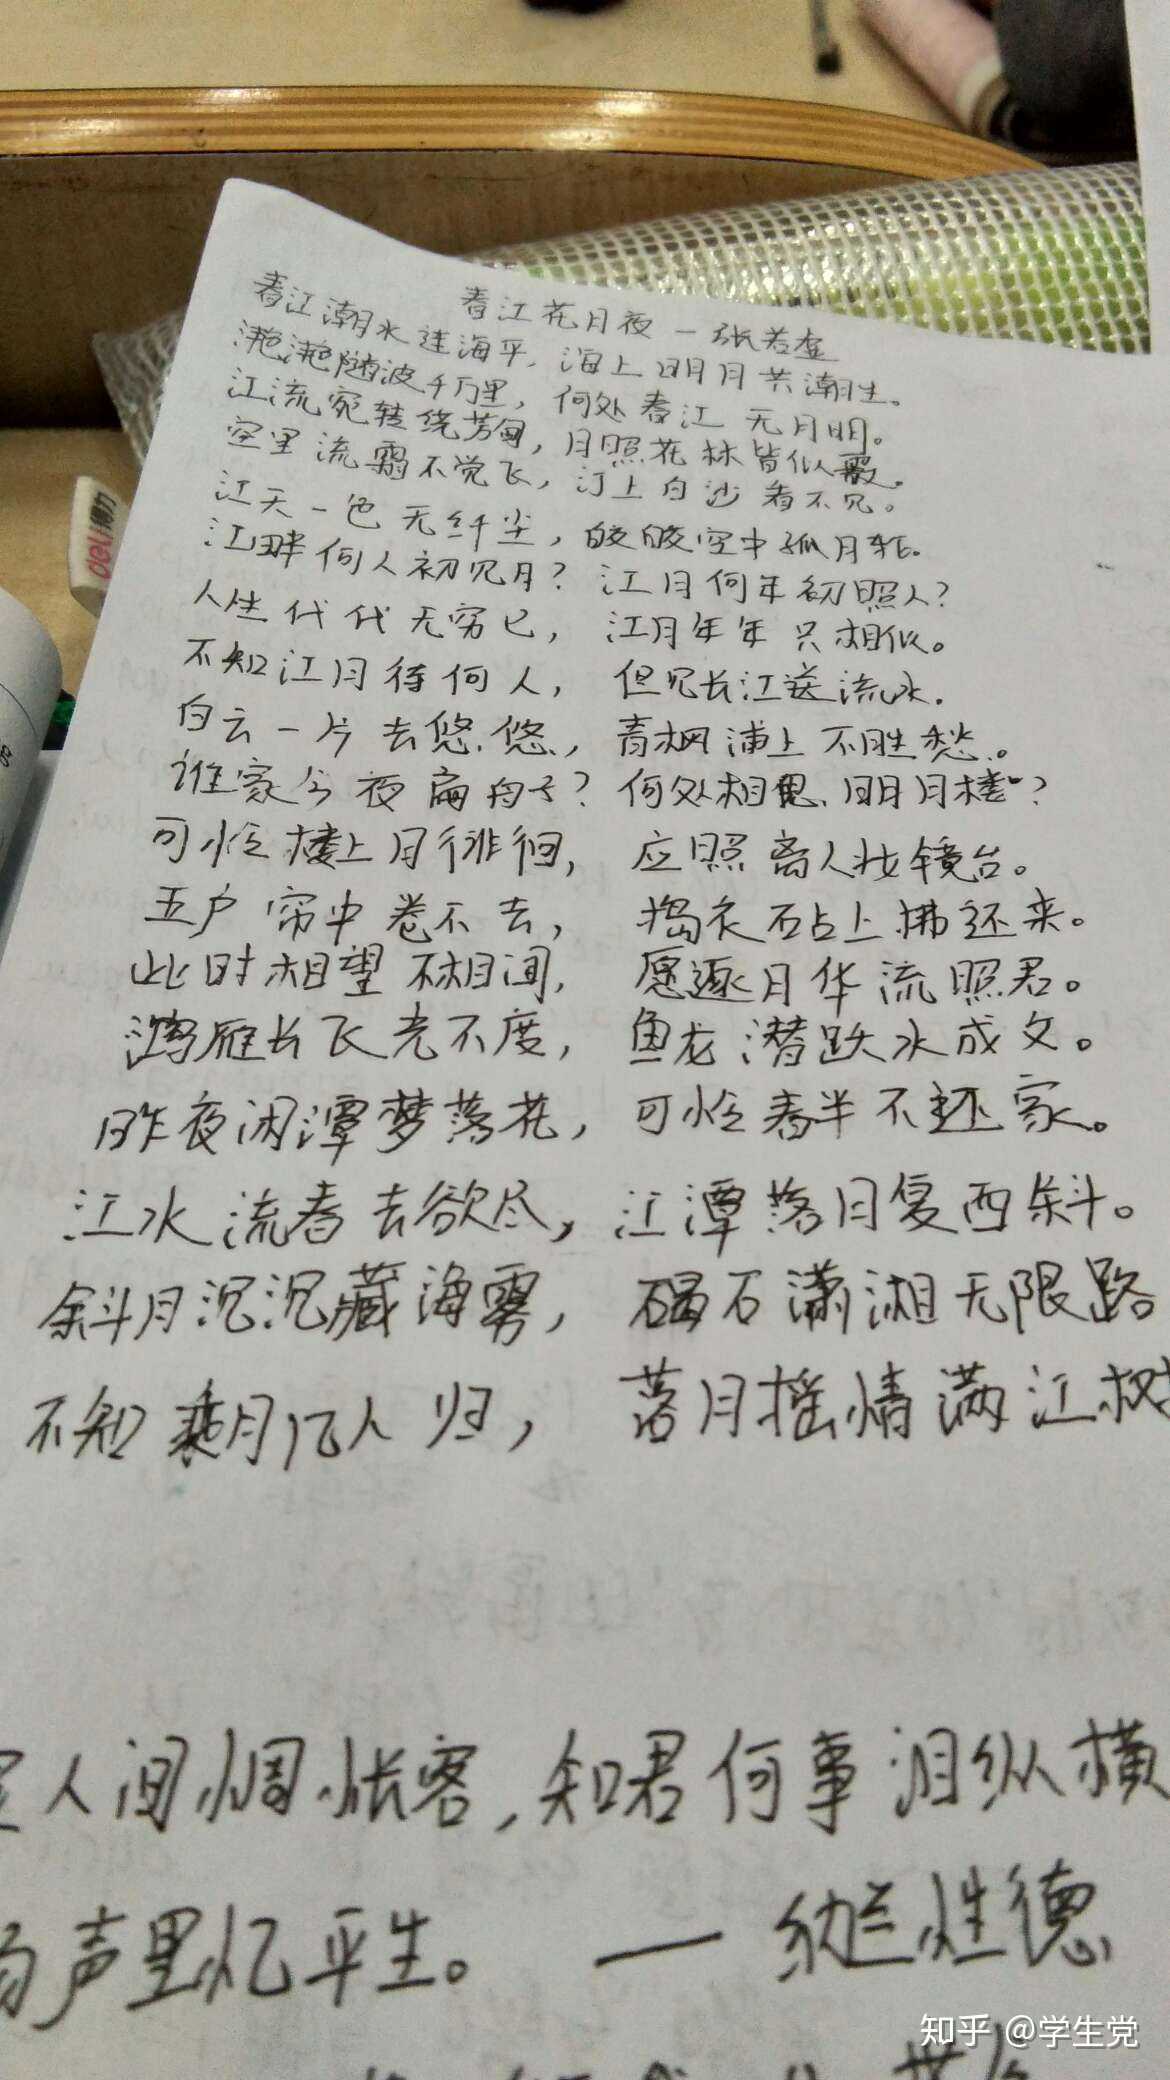 春江花月夜 — 张若虚
春江潮水连海平，海上明月共潮生。
滟滟随波千万里，何处春江无月明。
江流宛转绕芳甸，月照花林皆似霰。
空里流霜不觉飞，汀上白沙看不见。
江天一色无纤尘，皎皎空中孤月轮。
江畔何人初见月？江月何年初照人？
人生代代无穷已，江月年年只相似。
不知江月待何人，但见长江送流水.
白云一片去悠悠，青枫浦上不胜愁。
谁家今夜扁舟子？何处相思明月楼？
可怜楼上月徘徊，应照离人妆镜台。
玉户帘中卷不去，捣衣砧上拂还来。
此时相望不相闻，愿逐月华流照君。
鸿雁长飞光不度，鱼龙潜跃水成文。
昨夜闲潭梦落花，可怜春半不还家。
江水流春去欲尽，江潭落月复西斜。
斜月沉沉藏海雾，碣石潇湘无限路
不知乘月几人归，落月摇情满江树
人间惆怅客，知君何事泪纵横
声里忆平生。— 纳兰性德
知乎 @学生党
deli 得力